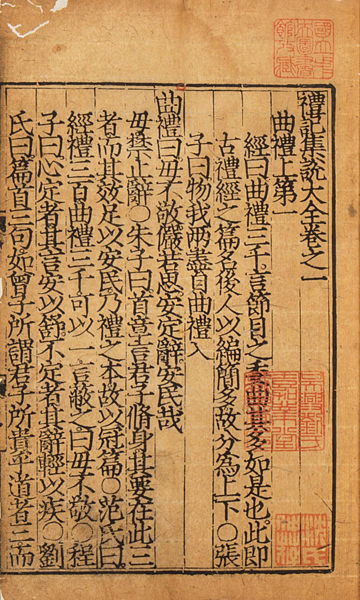 禮記集說大全卷之一
曲禮上第一
經曰曲禮三千言節目之委曲其多如是也此即
古禮經之篇名後人以編簡多故分為上下○張
子曰物我兩盡自曲禮入
曲禮曰毋不敬儼若思安定辭安民哉
毋禁止辭○朱子曰首章言君子脩身其要在此三
者而其效足以安民乃禮之本故以冠篇○范氏曰
經禮三百曲禮三千可以一言蔽之曰毋不敬○程
子曰心定者其言安以舒不定者其辭輕以疾○劉
氏曰篇首三句如曾子所謂君子所貴乎道者三而